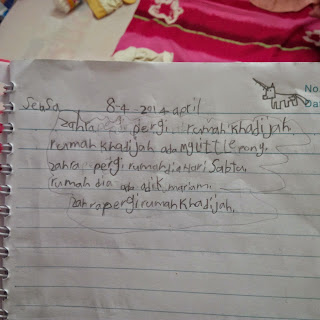 No.
Da
Selasa 8-4-2014 april
zahra pergi rumah khadijah.
rumah khadijah ada my little pony.
zahra pergi rumah dia hari Sabtu.
rumah dia ada adik mariam.
zahra pergi rumah khadijah.